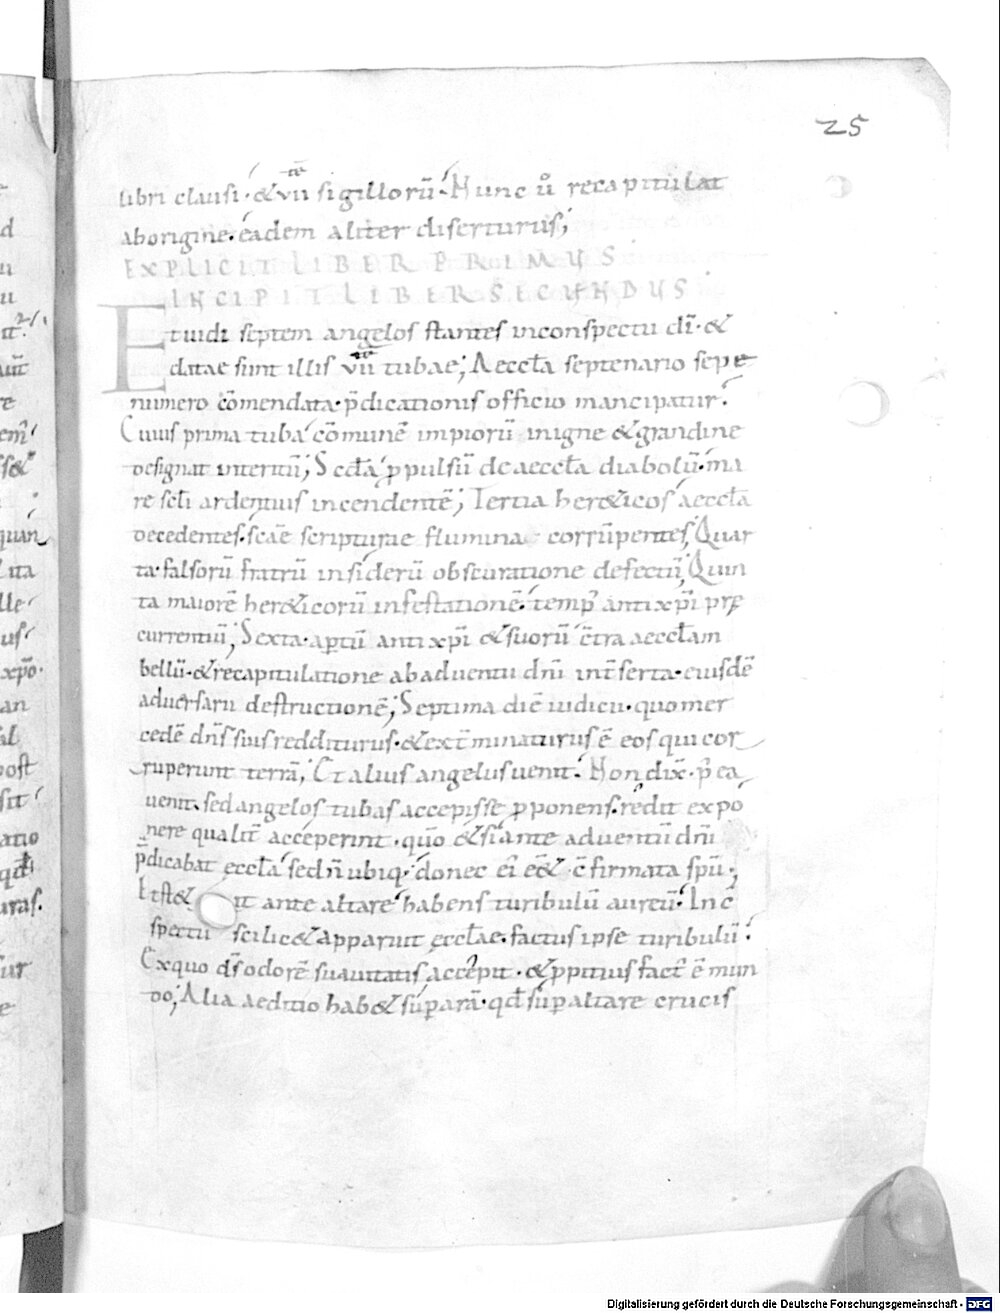 25
libri clausi · & vii sigillorū · Nunc ů recapitulat
aborigine · eadem aliter diserturus;
EXPLICIT LIBER PRIMUS
INCIPIT LIBER SECUNDUS
Et uidi septem angelos stantes inconspectu dī · &
datae sunt illis vii tubae; Aeccła septenario sepe
numero cōmendata · p̄dicationis officio mancipatur.
Cuius prima tuba cōmunē impiorū inigne & grandine
designat interitū; Scđa ppulsū de aeccła diabolū · ma
re scłi ardentius incendentē; Tertia her&icos aeccła
decedentes · scāe scripturae flumina corrūpentes; Quar
ta · falsorū fratrū insiderū obscuratione defectū; Quin
ta maiorē her&icorū infestationē · temp̄ antixp̄i prę
currentiū; Sexta · aptū antixp̄i & suorū c̄tra aeccłam
bellū · & recapitulatione abaduentu dn̄i int̄serta · eiusdē
aduersarii destructionē; Septima diē iudicii · quo mer
cedē dn̄s suis redditurus · & ext̄minaturus ē eos qui cor
ruperunt terrā; Et alius angelus uenit. Non dix̄ · p̄ ea
uenit · sed angelos tubas accepisse pponens · redit expo
nere qualit̄ acceperint · quō & si ante aduentū dn̄i
p̄dicabat eccła sed n̄ ubiq; donec ei eēt c̄firmata spū;
Et st& it ante altare habens turibulū aureū · Inc̄
spectu scilic& apparuit ęccłae · factus ipse turibulū.
Ex quo dς̄ odorē suauitatis accepit · & ppitius fact̄ ē mun
do; Alia aeditio hab& sup̄ arā · qđ sup̄ altare crucis
Digitalisierung gefördert durch die Deutsche Forschungsgemeinschaft - DFG